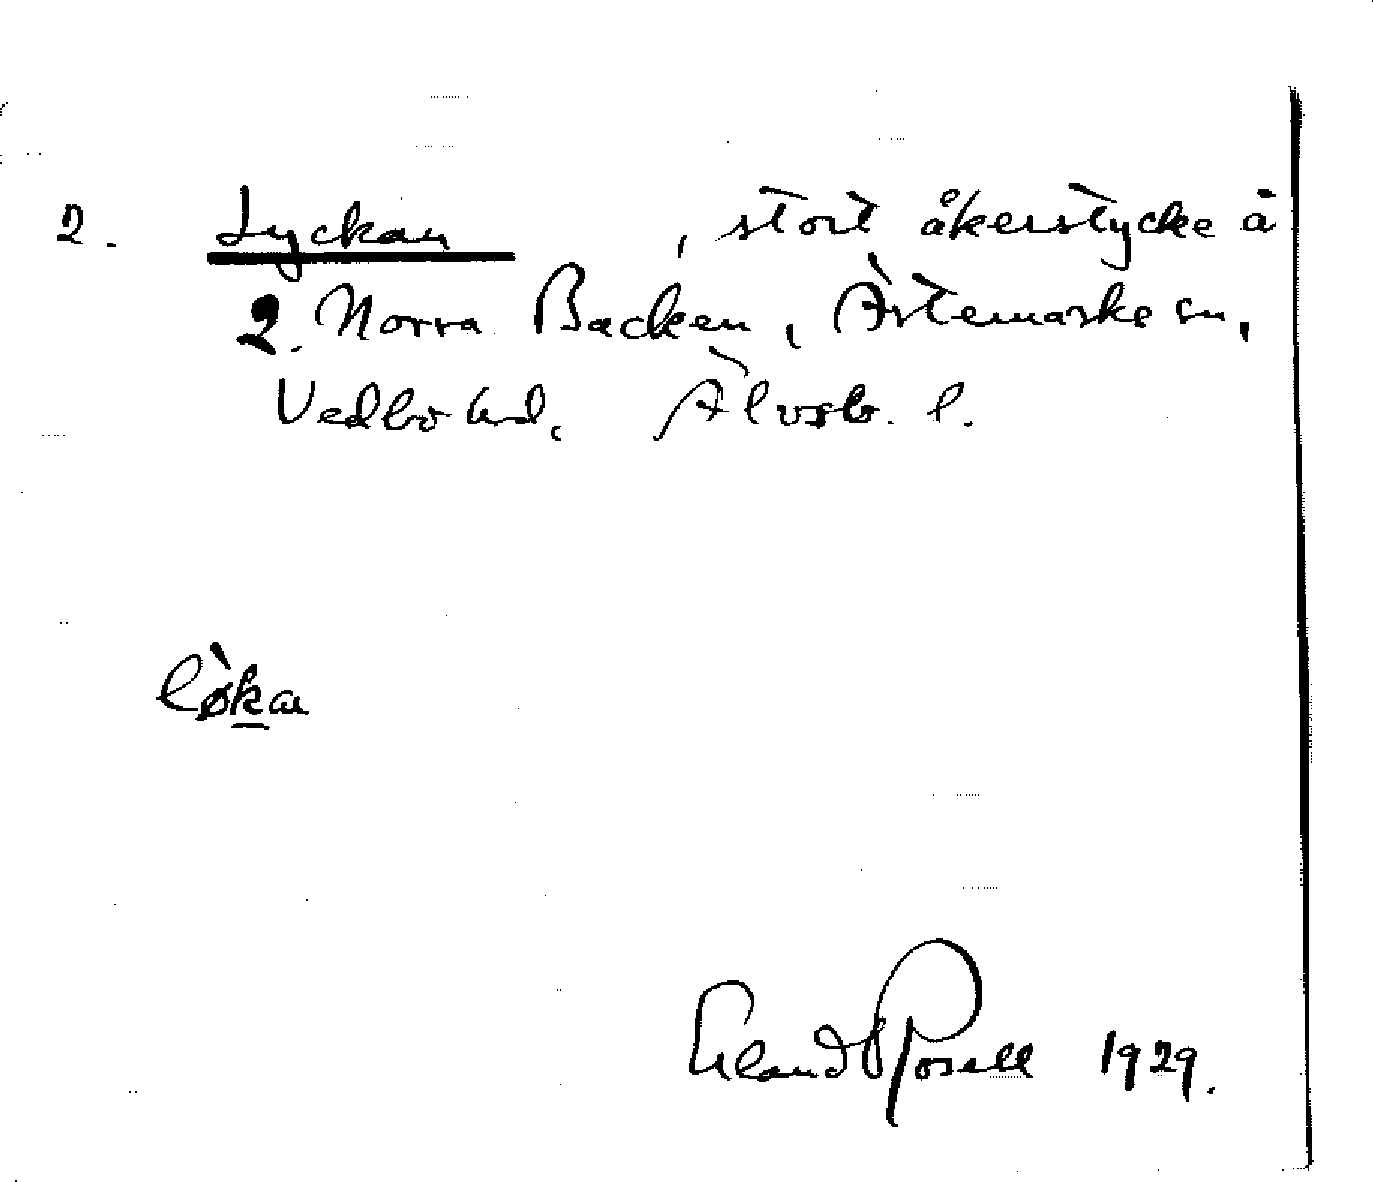 2. Lyckan , stort åkerstycke å
2. Norra Backen, Ärtemarks sn,
Vedbo hd, Älvsb. l.
lø̀ka
Erland Rosell 1929.